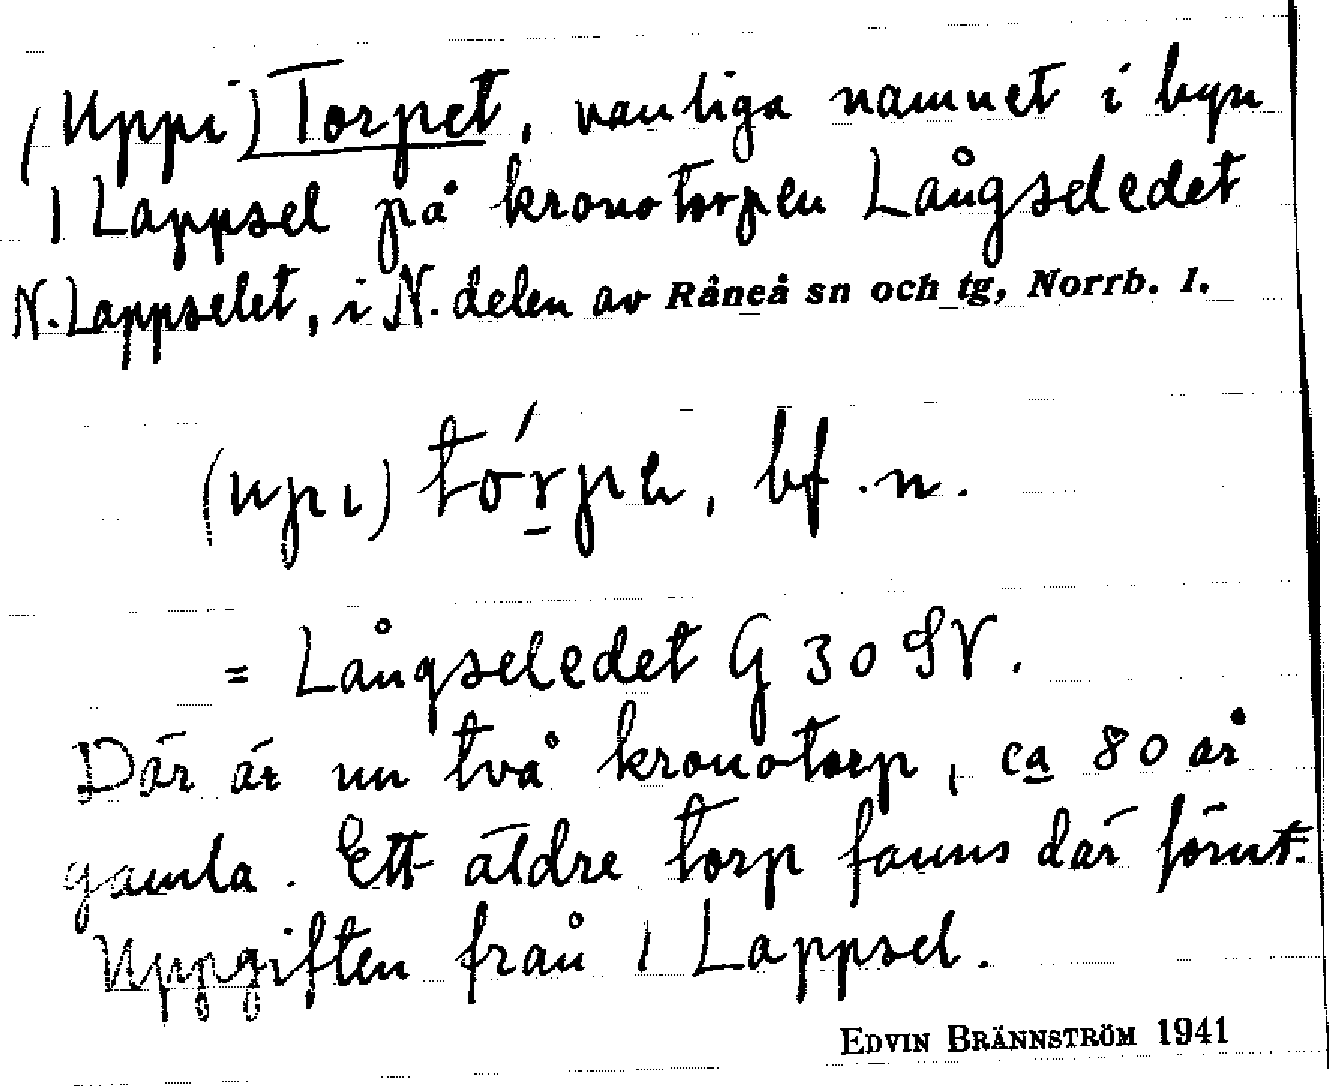 (Uppi) Torpet, vanliga namnet i byn
1 Lappsel på kronotorpen Långseledet
N. Lappselet, i N. delen av Råneå sn och tg, Norrb. l.
(upi) tórpe, bf. n.
= Långseledet G 30 SV.
Där är nu två kronotorp, ca 80 år
gamla. Ett äldre torp fanns där förut.
Uppgiften från 1 Lappsel.
EDVIN BRÄNNSTRÖM 1941